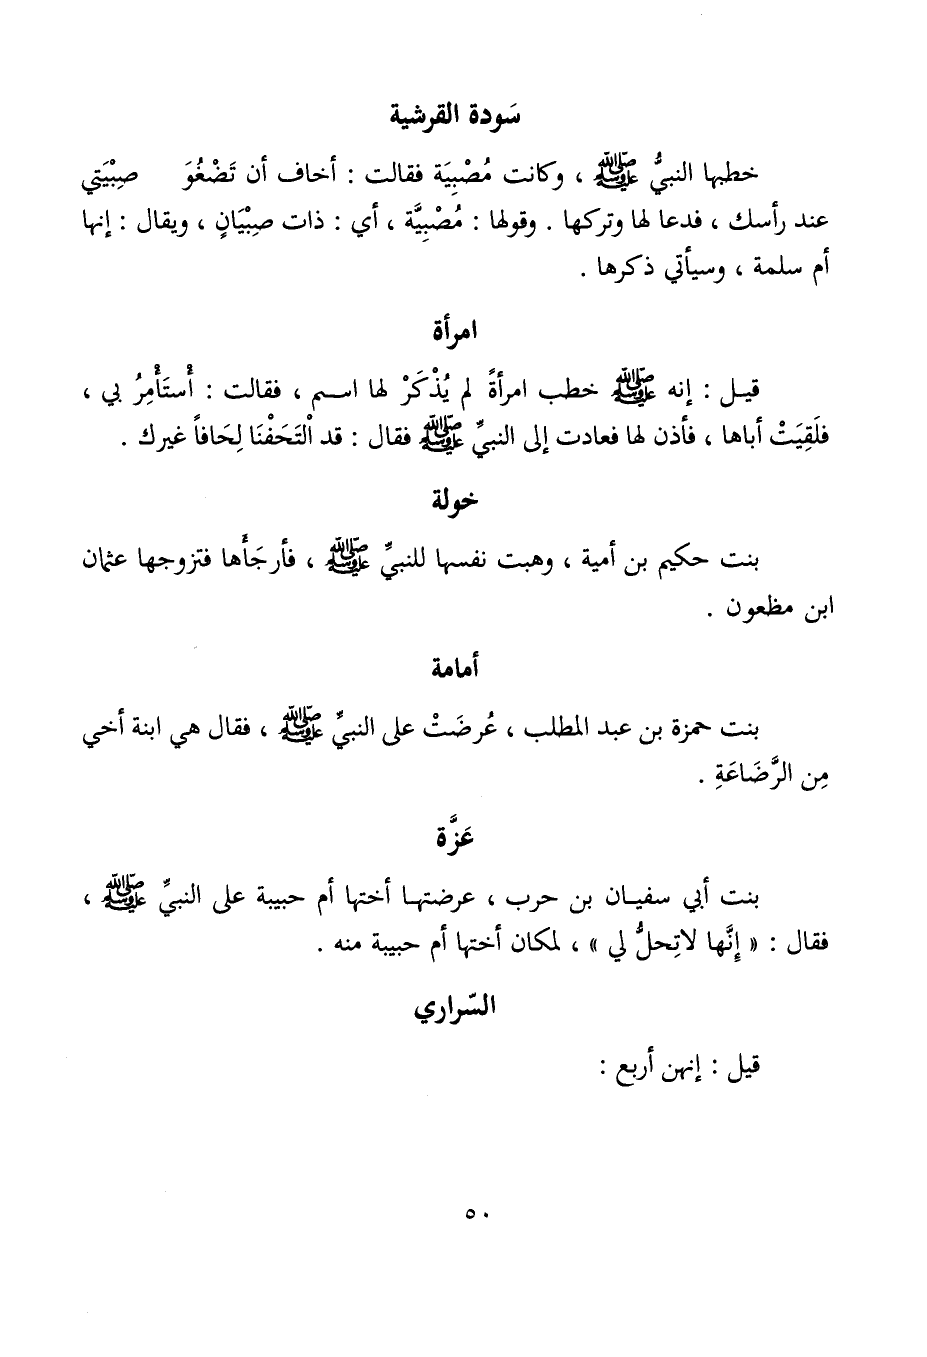 سَودة القرشية
خطبها النبيُّ ﷺ ، وكانت مُصْبِيَة فقالت : أخاف أن تَضْغُوَ صِبْيَتي
عند رأسك ، فدعا لها وتركها . وقولها : مُصْبِيَّة ، أي : ذات صِبْيَانٍ ، ويقال : إنها
أم سلمة ، وسيأتي ذكرها .
امرأة
قيل : إنه ﷺ خطب امرأةً لم يُذْكَرْ لها اسم ، فقالت : أُستَأْمِرُ بي ،
فلَقِيَتْ أباها ، فأذن لها فعادت إلى النبيِّ ﷺ فقال : قد الْتَحَفْنَا لِحَافاً غيرك .
خولة
بنت حكيم بن أمية ، وهبت نفسها للنبيِّ ﷺ ، فأرجَأَها فتزوجها عثمان
ابن مظعون .
أمامة
بنت حمزة بن عبد المطلب ، عُرضَتْ على النبيِّ ﷺ ، فقال هي ابنة أخي
مِن الرَّضَاعَةِ .
عَزَّة
بنت أبي سفيان بن حرب ، عرضتها أختها أم حبيبة على النبيِّ ﷺ ،
فقال : « إِنَّها لاتِحلُّ لي » ، لمكان أختها أم حبيبة منه .
السّراري
قيل : إنهن أربع :
٥٠